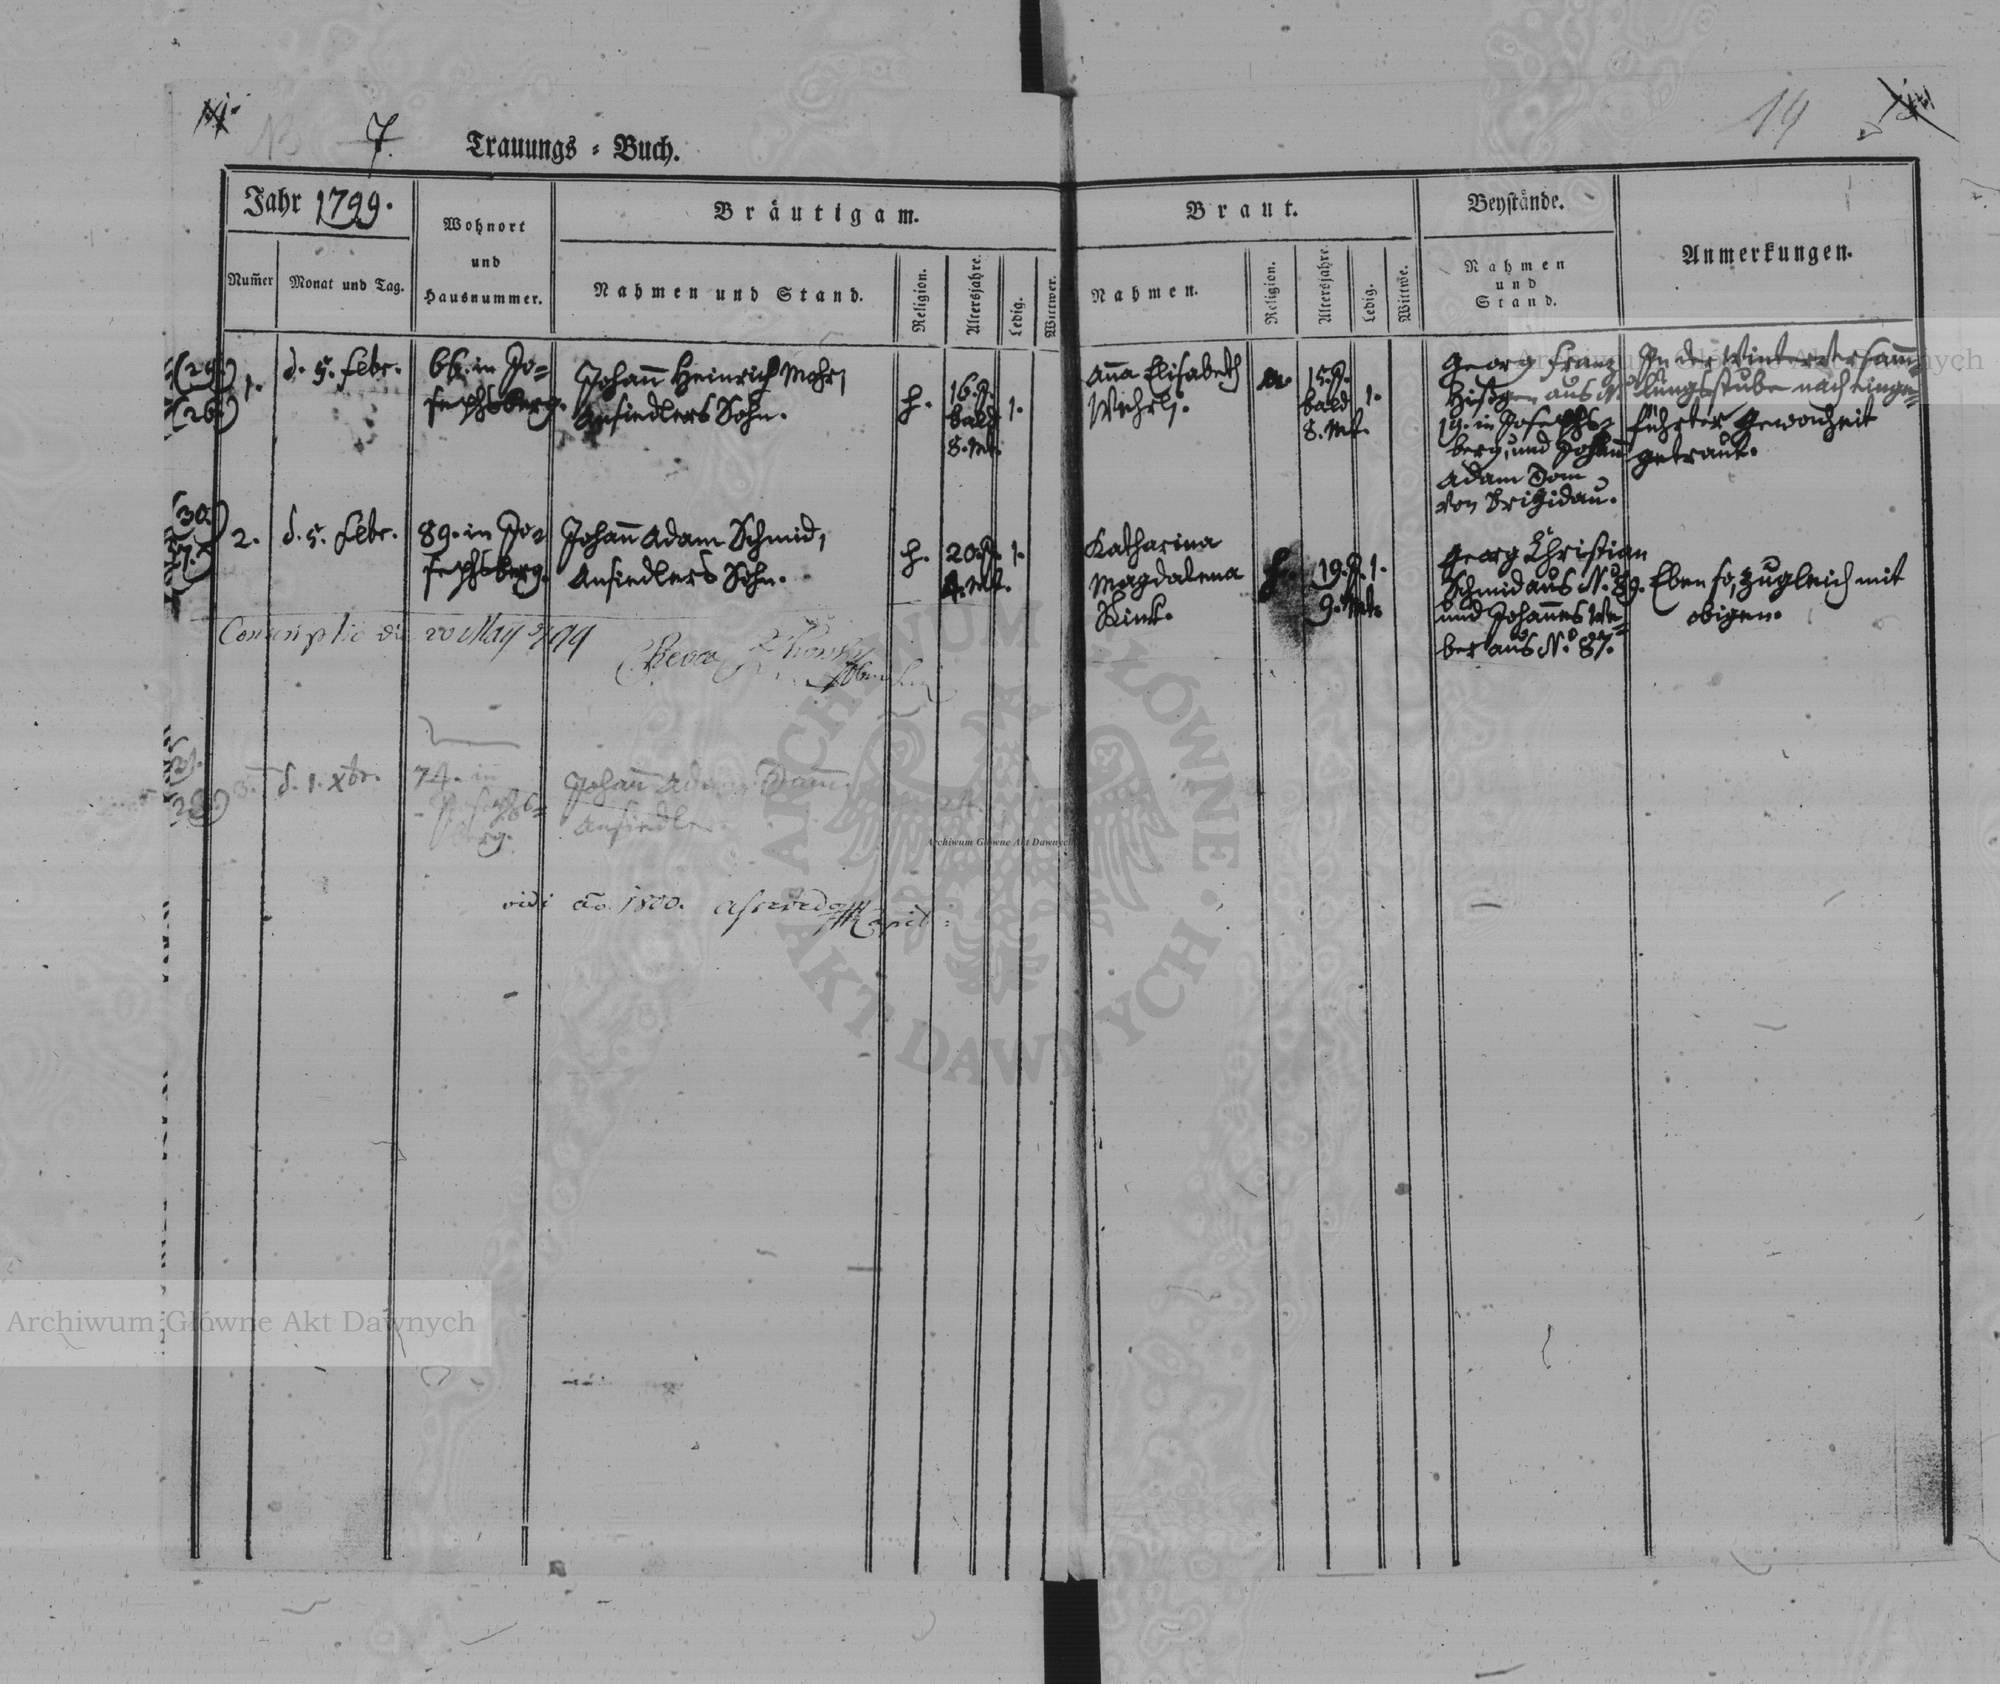 13 7. Trauungs = Buch.
14
Jahr 1799.
Wohnort
und
Hausnummer.
Bräutigam.
Braut.
Beystände.
Anmerkungen.
Num̃er
Monat und Tag.
Nahmen und Stand.
Religion.
Altersjahre.
Ledig.
Wittwer.
Nahmen.
Religion.
Altersjahre.
Ledig.
Wittwe.
Nahmen
und
Stand.
(29.)
(26.)
1.
d. 5. Febr.
66. in Jo=
sephsberg.
Johan̄ Heinrich Mohr,
Ansiedlers Sohn.
H.
16. J.
bald
8. Mt.
1.
Anna Elisabeth
Wehrli.
15. J.
bald
8. Mt.
1.
Georg Franz
aus N.
19. in Josephs=
berg, und Johan̄
Adam Dom
von Brigidau.
In der Winterversam̄=
lungsstube nach einge=
führter Gewonheit
getraut.
(30.)
2.
d. 5. Febr.
89. in Jo=
sephsberg.
Johan̄ Adam Schmid,
Ansiedlers Sohn.
H.
20. J.
4. Mt.
1.
Katharina
Magdalena
Rink.
H.
19. J.
9. Mt.
1.
Georg Christian
Schmid aus N. 89.
und Johan̄es We=
ber aus N. 87.
Eben so, zugleich mit
obigen.
20 May 799
(28)
3.
d. 1. Xbr.
74. in
Josephs=
berg.
Johan̄ Adam
Ansiedler
vidi ao. 1800.
ARCHIWUM GŁÓWNE • AKT DAWNYCH •
Archiwum Główne Akt Dawnych
Archiwum Główne Akt Dawnych
Archiwum Główne Akt Dawnych